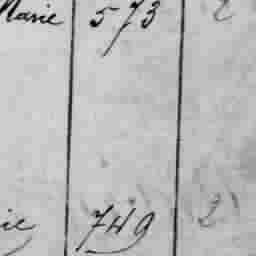 Marie 573 2
ie 749 2